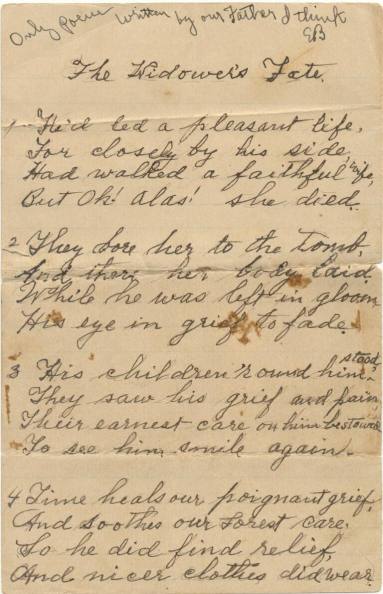 Only poem written by our Father I think
EB
The Widower's Fate.
1 He'd led a pleasant life,
For closely by his side,
Had walked a faithful wife,
But Oh! Alas! she died.
2 They bore her to the tomb,
And there her body laid
While he was left in gloom
His eye in grief to fade.
3 His children 'round him stood,
They saw his grief and pain,
Their earnest care on him bestowed
To see him smile again.
4 Time heals our poignant grief,
And soothes our forest care.
So he did find relief,
And nicer clothes did wear